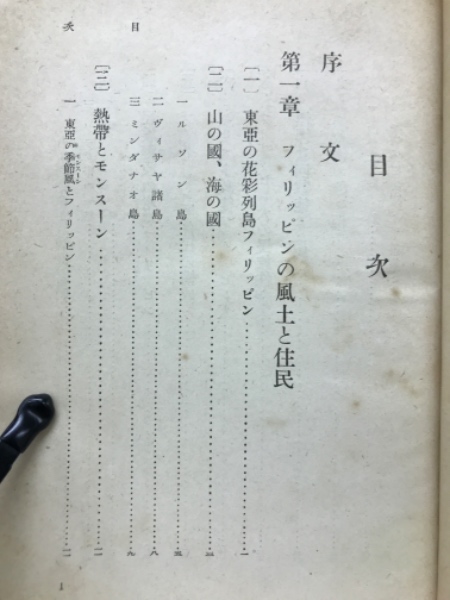 目次
序文
第一章 フィリッピンの風土と住民
〔一〕 東亞の花彩列島フィリッピン……一
〔二〕 山の國、海の國……三
一 ルソン島……五
二 ヴィサヤ諸島……八
三 ミンダナオ島……九
〔三〕 熱帶とモンスーン……一一
一 東亞の季節風とフィリッピン……一一
モンスーン
目次
1